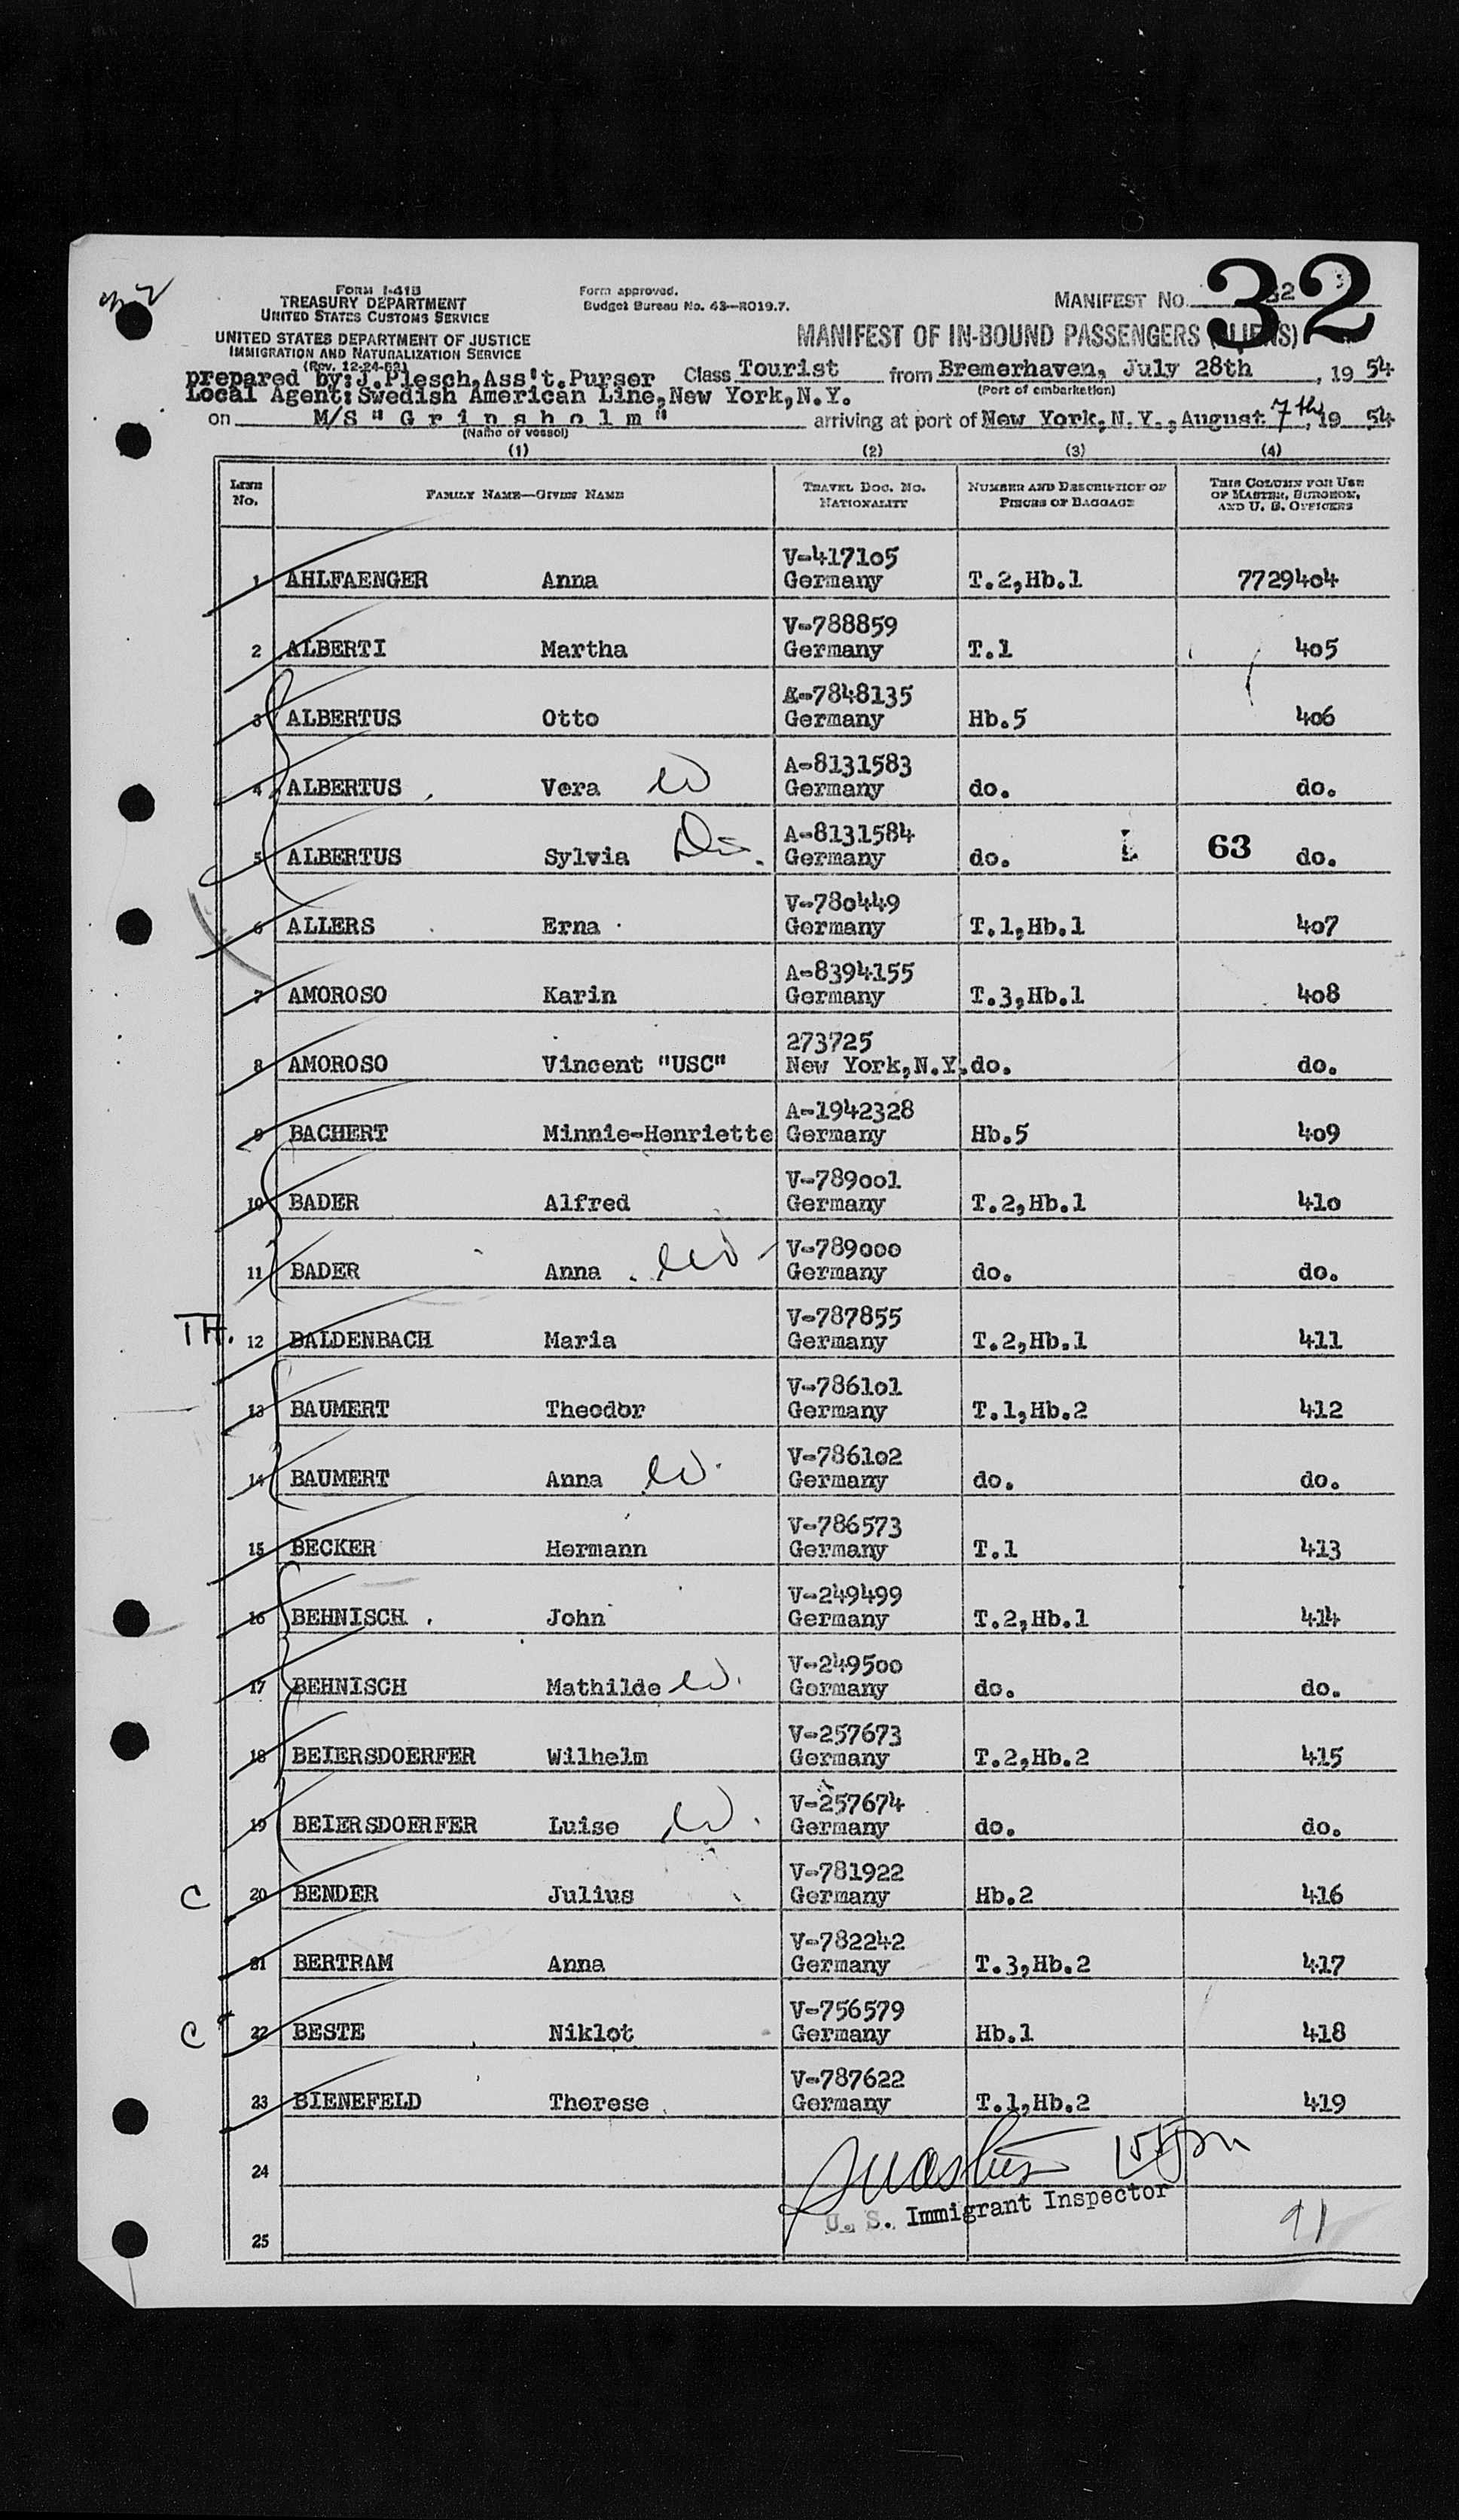 FORM I-418
TREASURY DEPARTMENT
UNITED STATES CUSTOMS SERVICE
UNITED STATES DEPARTMENT OF JUSTICE
IMMIGRATION AND NATURALIZATION SERVICE
(Rev. 12-24-52)
Form approved.
Budget Bureau No. 43—R019.7.
MANIFEST NO. 32
32
MANIFEST OF IN-BOUND PASSENGERS (ALIENS)
prepared by: J.Plesch, Ass't. Purser Class Tourist from Bremerhaven, July 28th, 1954
Local Agent: Swedish American Line, New York, N.Y. (Port of embarkation)
on M/S "Gripsholm" arriving at port of New York, N.Y., August 7th, 1954
(Name of vessel)
(1) (2) (3) (4)
LINE No. FAMILY NAME—GIVEN NAME TRAVEL DOC. NO. NATIONALITY NUMBER AND DESCRIPTION OF PIECES OF BAGGAGE THIS COLUMN FOR USE OF MASTER, SURGEON, AND U. S. OFFICERS
V-417105
1 AHLFAENGER Anna Germany T.2,Hb.1 7729404
V-788859
2 ALBERTI Martha Germany T.1 405
A-7848135
3 ALBERTUS Otto Germany Hb.5 406
A-8131583
4 ALBERTUS Vera W Germany do. do.
A-8131584
5 ALBERTUS Sylvia Da. Germany do. 63 do.
V-780449
6 ALLERS Erna Germany T.1,Hb.1 407
A-8394155
7 AMOROSO Karin Germany T.3,Hb.1 408
273725
8 AMOROSO Vincent "USC" New York,N.Y. do. do.
A-1942328
9 BACHERT Minnie-Henriette Germany Hb.5 409
V-789001
10 BADER Alfred Germany T.2,Hb.1 410
V-789000
11 BADER Anna W Germany do. do.
V-787855
TH. 12 BALDENBACH Maria Germany T.2,Hb.1 411
V-786101
13 BAUMERT Theodor Germany T.1,Hb.2 412
V-786102
14 BAUMERT Anna W. Germany do. do.
V-786573
15 BECKER Hermann Germany T.1 413
V-249499
16 BEHNISCH John Germany T.2,Hb.1 414
V-249500
17 BEHNISCH Mathilde W. Germany do. do.
V-257673
18 BEIERSDOERFER Wilhelm Germany T.2,Hb.2 415
V-257674
19 BEIERSDOERFER Luise W. Germany do. do.
V-781922
C 20 BENDER Julius Germany Hb.2 416
V-782242
21 BERTRAM Anna Germany T.3,Hb.2 417
V-756579
C 22 BESTE Niklot Germany Hb.1 418
V-787622
23 BIENEFELD Therese Germany T.1,Hb.2 419
24
U. S. Immigrant Inspector
25 91